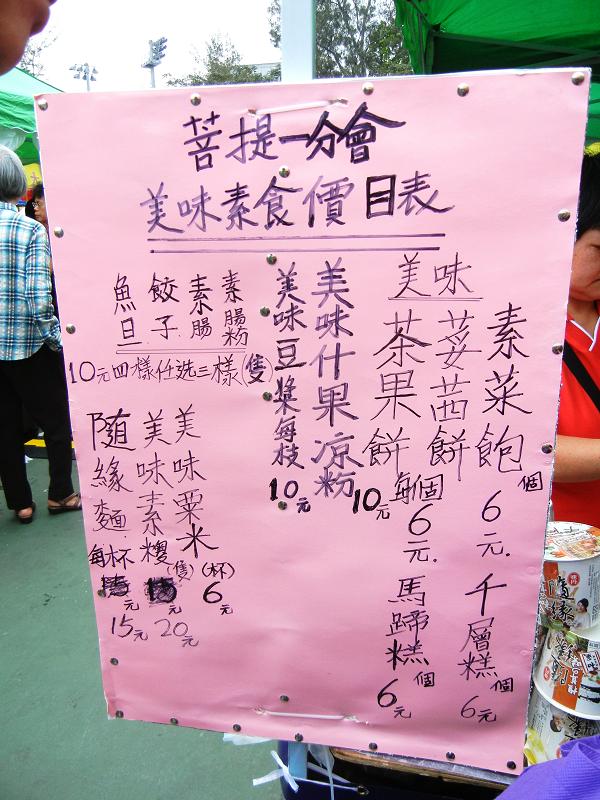 菩提一分會
美味素食價目表
美味
素菜飽
個
6元.
荽茜餅
茶果餅
每個
6元.
千層糕
個
6元
馬蹄糕
個
6元
美味什果凉粉
10元
美味豆漿每枝
10元
素腸粉
素腸
餃子
魚旦
10元四樣任選三樣(隻)
美味粟米
(杯)
6元
美味素糭
(隻)
元
20元
隨緣麵
每杯
元
15元
隨緣